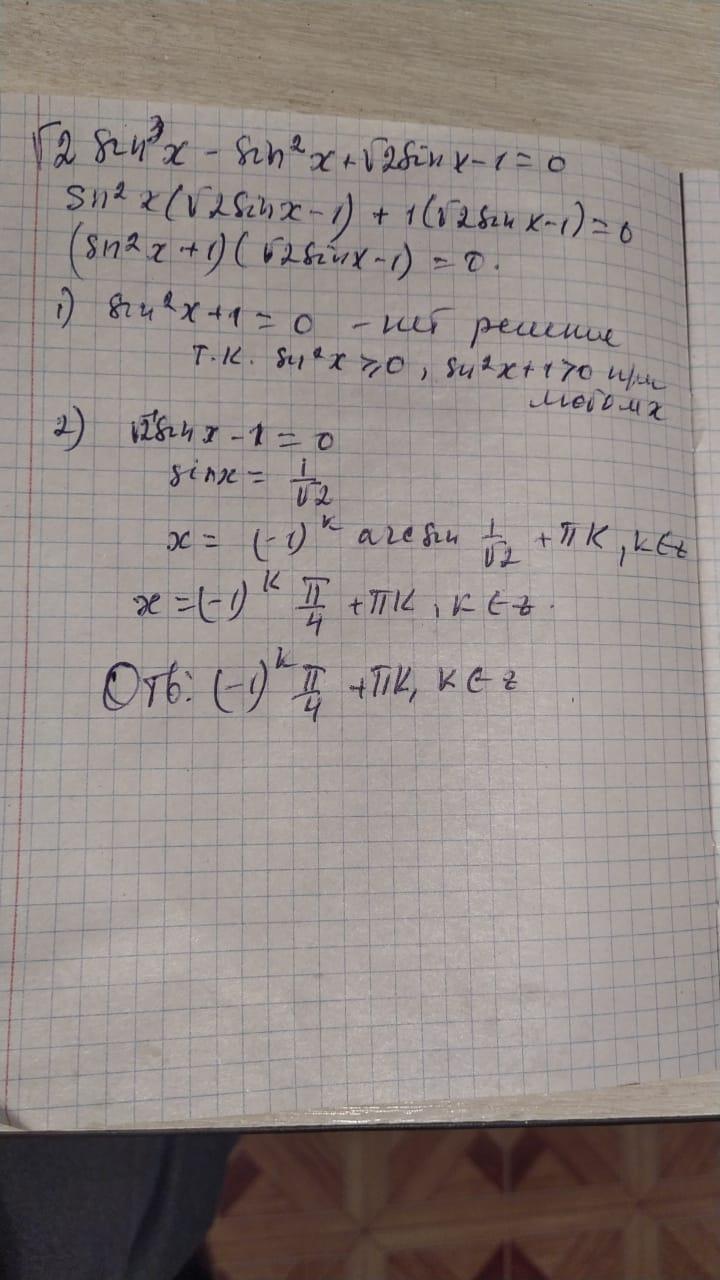 √2 sin³x - sin²x + √2 sinx - 1 = 0
sin²x(√2 sinx - 1) + 1(√2 sinx - 1) = 0
(sin²x + 1)(√2 sinx - 1) = 0.
1) sin²x + 1 = 0 - нет решения
т.к. sin²x ⩾ 0, sin²x + 1 > 0 при
любом x
2) √2 sinx - 1 = 0
sinx = 1/√2
x = (-1)^k arcsin 1/√2 + πk, k ∈ z
x = (-1)^k π/4 + πk, k ∈ z.
Отв: (-1)^k π/4 + πk, k ∈ z